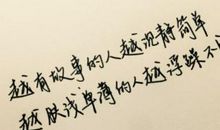 越有故事的人越沉静简单
越肤浅单薄的人越浮躁不